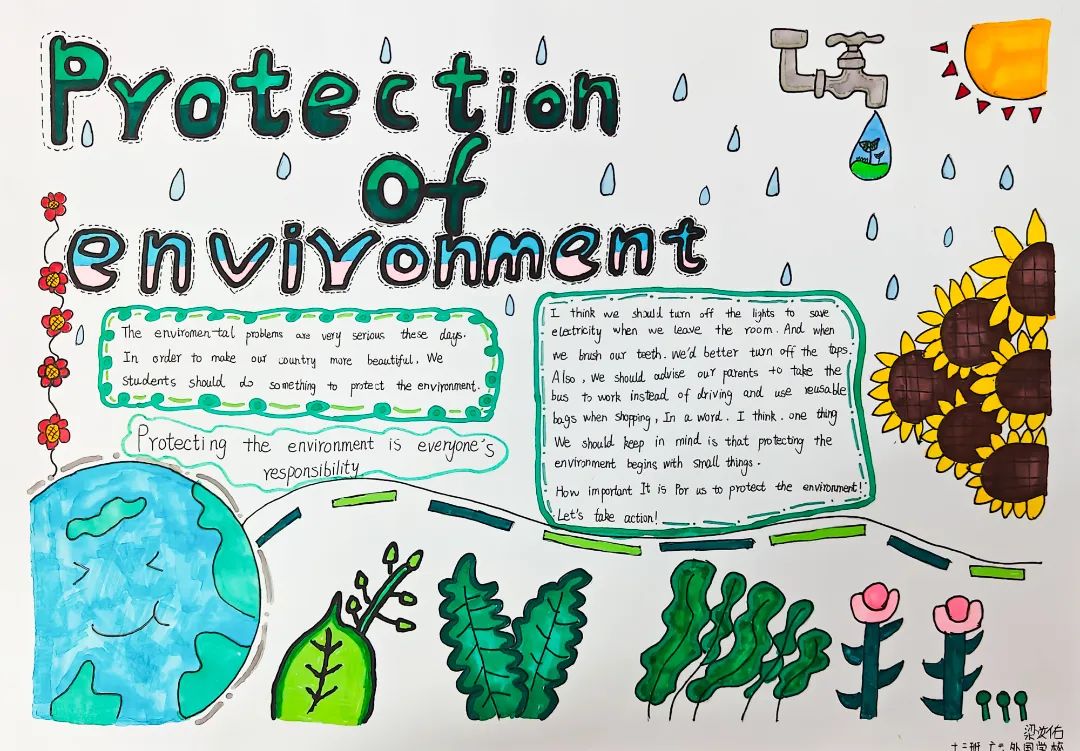 Protection
of
environment
The enviromen-tal problems are very serious these days.
In order to make our country more beautiful, We
students should do something to protect the environment.
Protecting the environment is everyone's
responsibility
I think we should turn off the lights to save
electricity when we leave the room. And when
we brush our teeth. We'd better turn off the taps.
Also, we should advise our parents to take the
bus to work instead of driving and use reusable
bags when shopping, In a word. I think. one thing
We should keep in mind is that protecting the
environment begins with small things.
How important It is For us to protect the environment!
Let's take action!